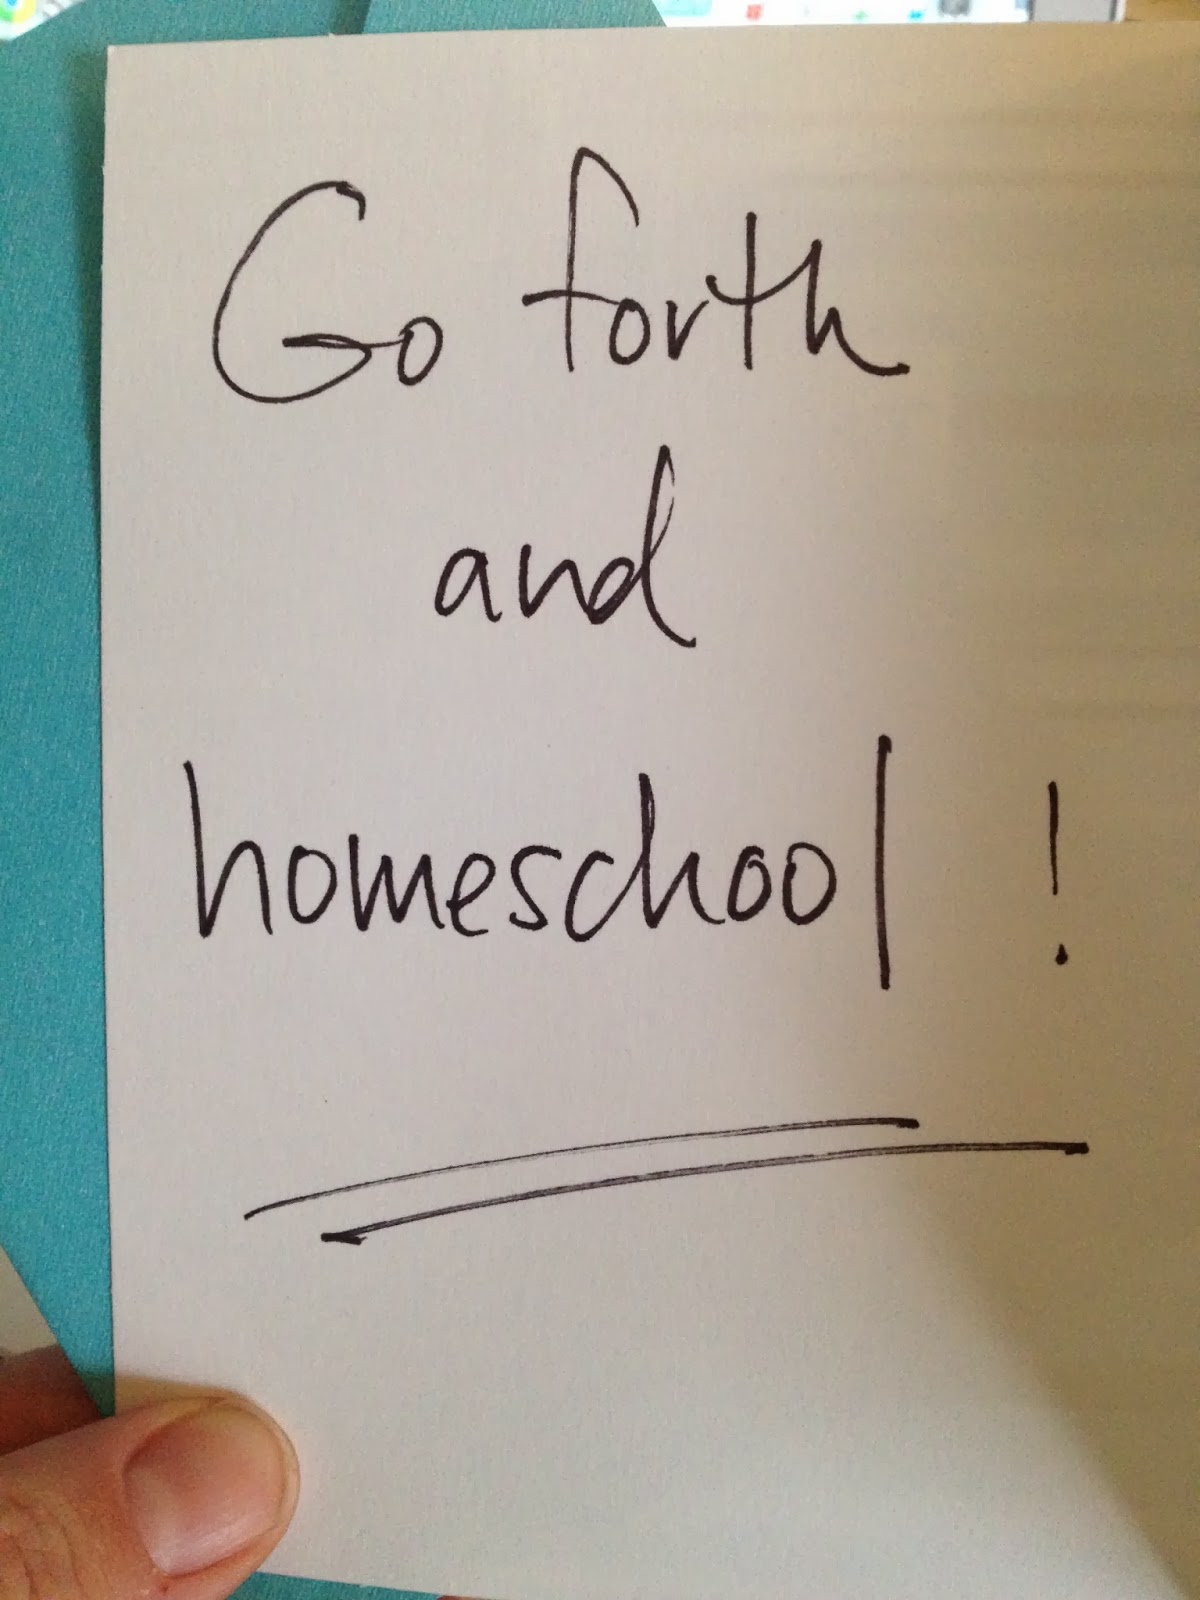 Go forth
and
homeschool !